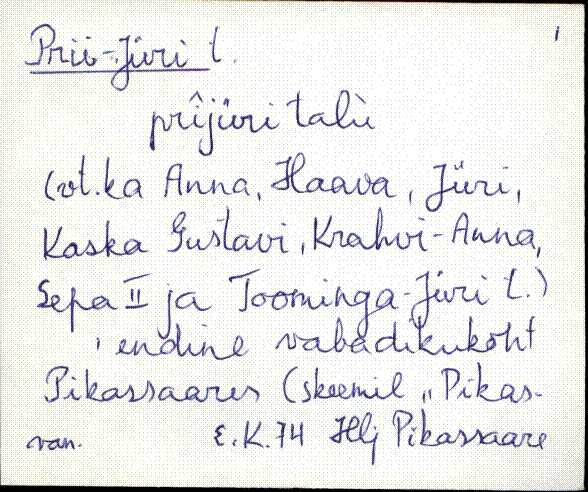 Prii-Jüri t. 1
prîjüri talù
(vt. ka Anna, Haava, Jüri,
Kaska Gustavi, Krahvi-Anna,
Sepa II ja Toominga-Jüri t.)
, endine vabadikukoht
Pikassaares (skeemil „Pikas-
van. E.K. 74 Hlj Pikassaare